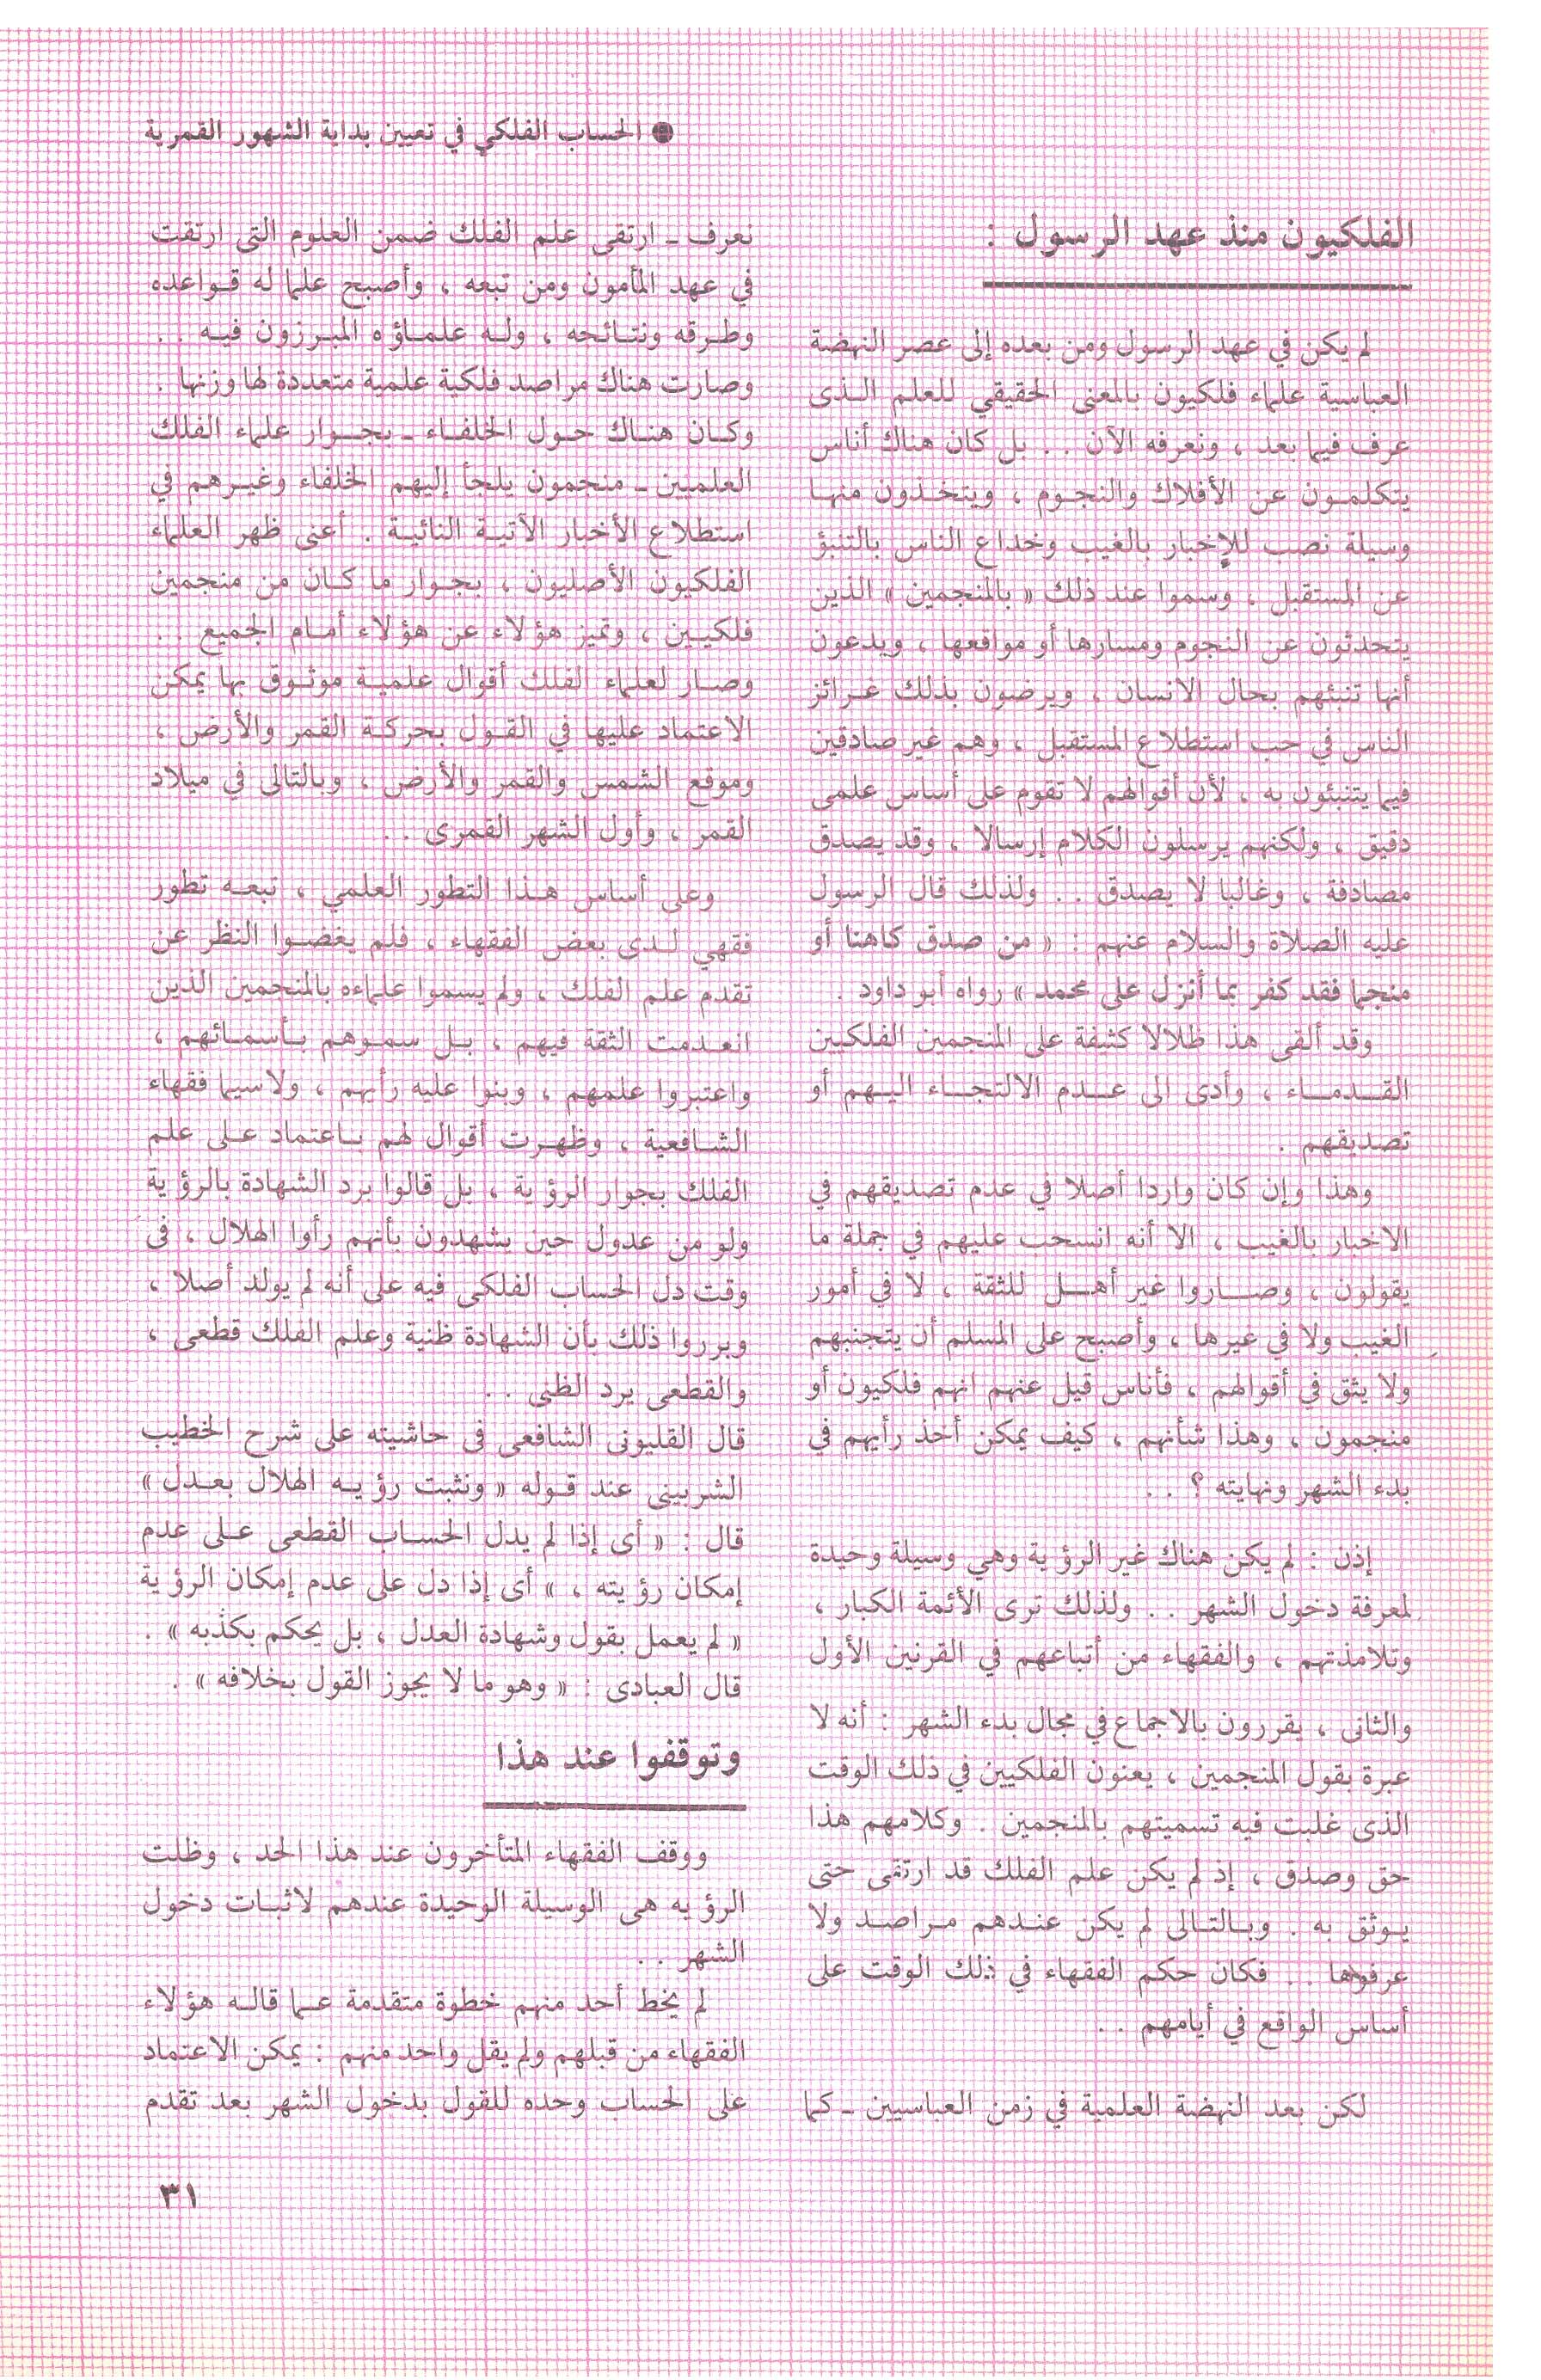 ● الحساب الفلكي في تعيين بداية الشهور القمرية
الفلكيون منذ عهد الرسول :
لم يكن في عهد الرسول ومن بعده إلى عصر النهضة
العباسية علماء فلكيون بالمعنى الحقيقي للعلم الـذى
عرف فيما بعد ، ونعرفه الآن . . بل كان هناك أناس
يتكلمـون عن الأفلاك والنجـوم ، ويتخـذون منهـا
وسيلة نصب للإخبار بالغيب وخداع الناس بالتنبؤ
عن المستقبل ، وسموا عند ذلك « بالمنجمين » الذين
يتحدثون عن النجوم ومسارها أو مواقعها ، ويدعون
أنها تنبئهم بحال الانسان ، ويرضون بذلك غـرائز
الناس في حب استطلاع لمستقبل ، وهم غير صادقين
فيما يتنبئون به ، لأن أقوالهم لا تقوم على أساس علمى
دقيق ، ولكنهم يرسلون الكلام إرسالا ، وقد يصدق
مصادفة ، وغالبا لا يصدق . . ولذلك قال الرسول
عليه الصلاة والسلام عنهم : « من صدق كاهنا أو
منجما فقد كفر بما أنزل على محمد » رواه أبو داود .
وقد ألقى هذا ظلالا كثيفة على المنجمين الفلكيين
القـدمـاء ، وأدى الى عـدم الالتجـاء اليـهم أو
تصديقهم .
وهذا وإن كان واردا أصلا في عدم تصديقهم في
الاخبار بالغيب ، الا أنه انسحب عليهم في جملة ما
يقولون ، وصـاروا غير أهـل للثقة ، لا في أمور
الغيب ولا في غيرها ، وأصبح على المسلم أن يتجنبهم
ولا يثق في أقوالهم ، فأناس قيل عنهم انهم فلكيون أو
منجمون ، وهذا شأنهم ، كيف يمكن أخذ رأيهم في
بدء الشهر ونهايته ؟ . .
إذن : لم يكن هناك غير الرؤية وهي وسيلة وحيدة
لمعرفة دخول الشهر . . ولذلك ترى الأئمة الكبار ،
وتلامذتهم ، والفقهاء من أتباعهم في القرنين الأول
والثانى ، يقررون بالاجماع في مجال بدء الشهر : أنه لا
عبرة بقول المنجمين ، يعنون الفلكيين في ذلك الوقت
الذى غلبت فيه تسميتهم بالمنجمين . وكلامهم هذا
حق وصدق ، إذ لم يكن علم الفلك قد ارتقى حتى
يـوثق به . وبـالتـالى لم يكن عنـدهم مـراصـد ولا
عرفوها . . فكان حكم الفقهاء في ذلك الوقت على
أساس الواقع في أيامهم . .
لكن بعد النهضة العلمية في زمن العباسيين ـ كما
نعرف ـ ارتقى علم الفلك ضمن العلوم التى ارتقت
في عهد المأمون ومن تبعه ، وأصبح علما له قـواعده
وطـرقه ونتـائجه ، ولـه علمـاؤه المبـرزون فيـه . .
وصارت هناك مراصد فلكية علمية متعددة لها وزنها .
وكـان هنـاك حـول الخلفـاء ـ بجـوار علماء الفلك
العلميين ـ منجمون يلجأ إليهم الخلفاء وغيـرهم في
استطلاع الأخبار الآتيـة النائيـة . أعنى ظهر العلماء
الفلكيون الأصليون ، بجـوار ما كـان من منجمين
فلكيـين ، وتميز هؤلاء عن هؤلاء أمـام الجميع . .
وصـار لعلماء الفلك أقوال علميـة موثـوق بها يمكن
الاعتماد عليها في القـول بحركـة القمر والأرض ،
وموقع الشمس والقمر والأرض ، وبالتالى في ميلاد
القمر ، وأول الشهر القمرى . .
وعلى أساس هـذا التطور العلمي ، تبعـه تطور
فقهي لـدى بعض الفقهاء ، فلم يغضـوا النظر عن
تقدم علم الفلك ، ولم يسموا علماءه بالمنجمين الذين
انعـدمت الثقة فيهم ، بـل سمـوهم بـأسمـائهم ،
واعتبروا علمهم ، وبنوا عليه رأيهم ، ولاسيما فقهاء
الشـافعية ، وظهـرت أقوال لهم بـاعتماد عـلى علم
الفلك بجوار الرؤية ، بل قالوا برد الشهادة بالرؤية
ولو من عدول حين يشهدون بأنهم رأوا الهلال ، فى
وقت دل الحساب الفلكى فيه على أنه لم يولد أصلا ،
وبرروا ذلك بأن الشهادة ظنية وعلم الفلك قطعى ،
والقطعى يرد الظنى . .
قال القليوبى الشافعى فى حاشيته على شرح الخطيب
الشربينى عند قـوله « ونثبت رؤيـه الهلال بعـدل »
قال : « أى إذا لم يدل الحسـاب القطعى عـلى عدم
إمكان رؤيته ، » أى إذا دل على عدم إمكان الرؤية
« لم يعمل بقول وشهادة العدل ، بل يحكم بكذبه » .
قال العبادى : « وهو ما لا يجوز القول بخلافه » .
وتوقفوا عند هذا
ووقف الفقهاء المتأخرون عند هذا الحد ، وظلت
الرؤيه هى الوسيلة الوحيدة عندهم لاثبـات دخول
الشهر . .
لم يخط أحد منهم خطوة متقدمة عـما قالـه هؤلاء
الفقهاء من قبلهم ولم يقل واحد منهم : يمكن الاعتماد
على الحساب وحده للقول بدخول الشهر بعد تقدم
٣١